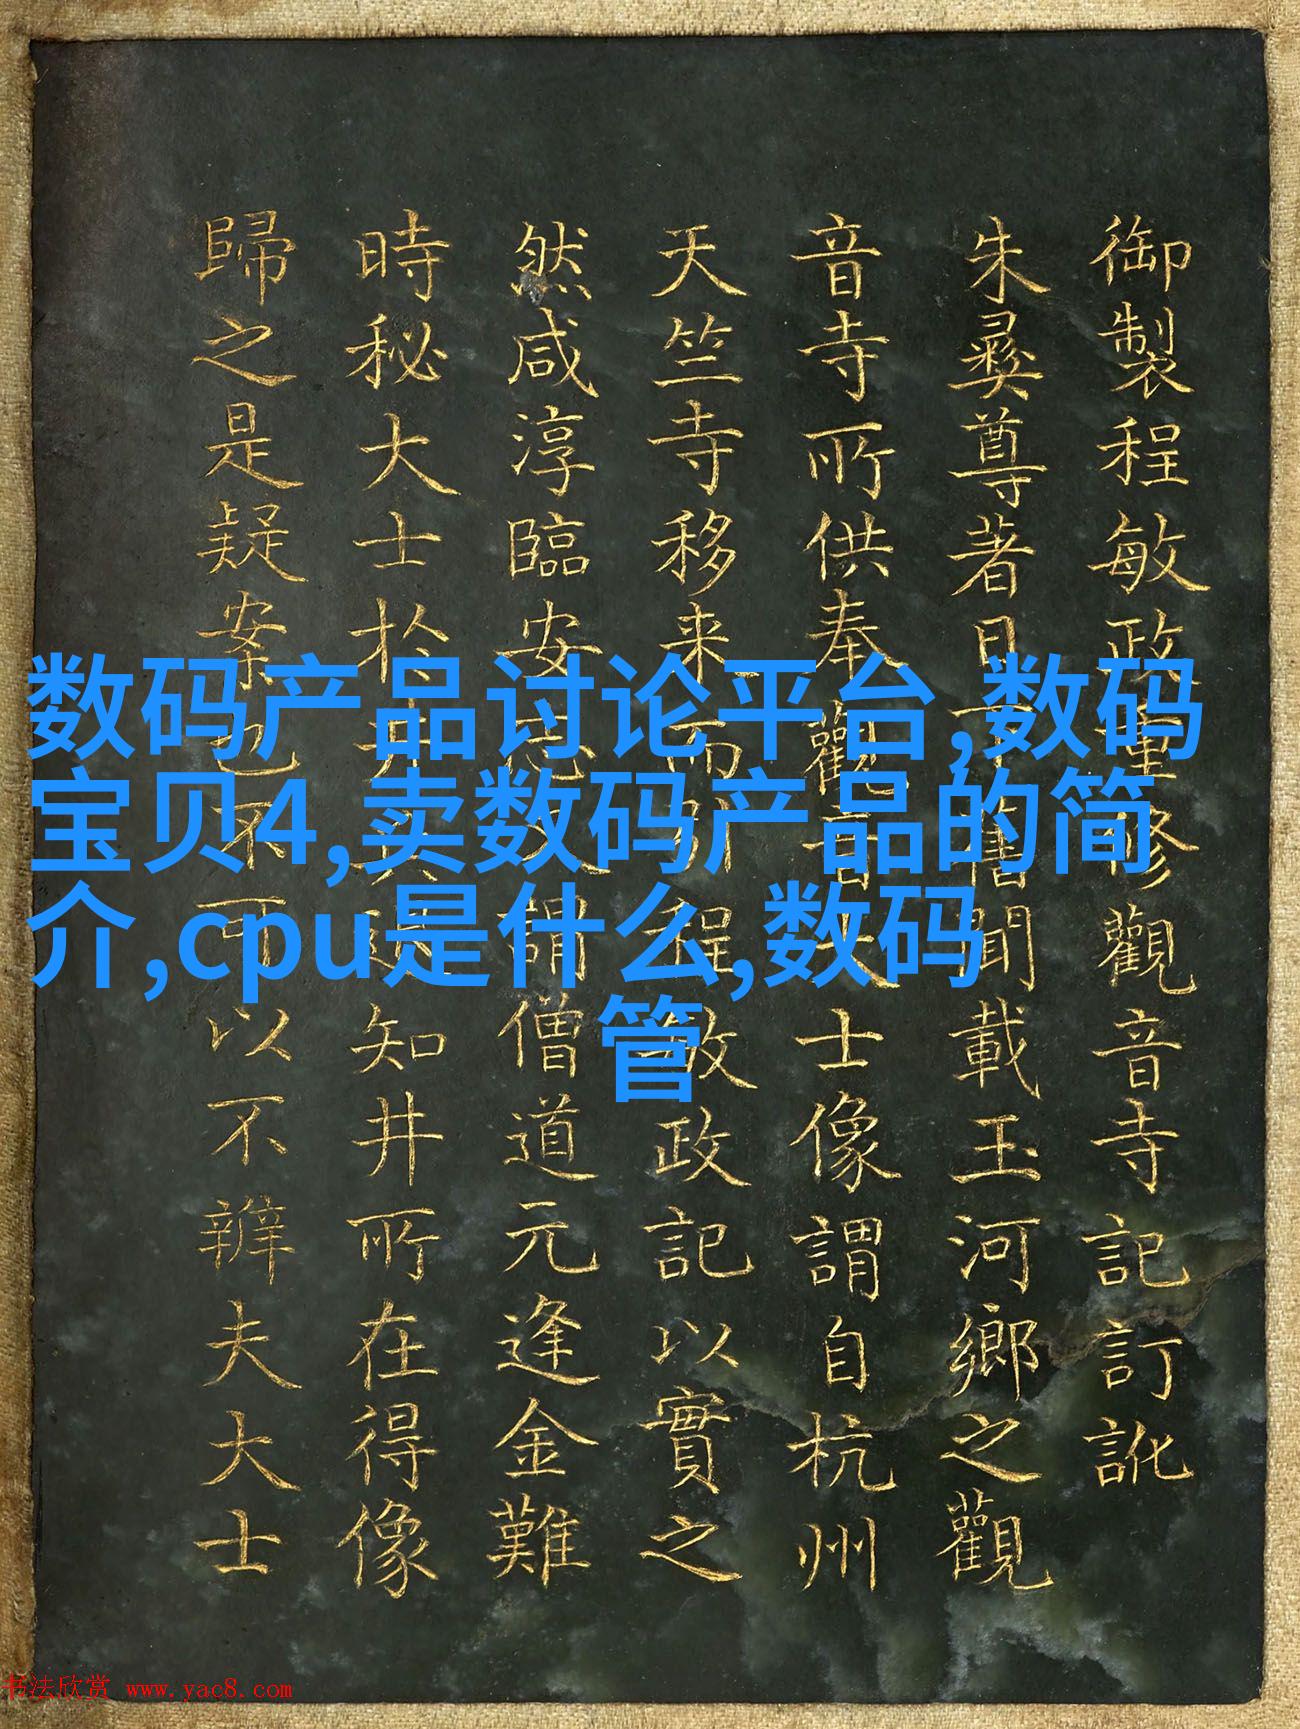 御製程敏政重修觀音寺記訂訛
朱彝尊著日下舊聞載玉河鄉之觀
音寺所供奉觀音大士像謂自杭州
天竺寺移来而引程敏政記以實之
然咸淳臨安志又謂僧道元逢金難
時秘大士於井知井所在得像
歸之是疑案也不可以不辨夫大士
数码产品讨论平台,数码
宝贝4,卖数码产品的简
介,cpu是什么,数码
管
书法欣赏 www.yac8.com